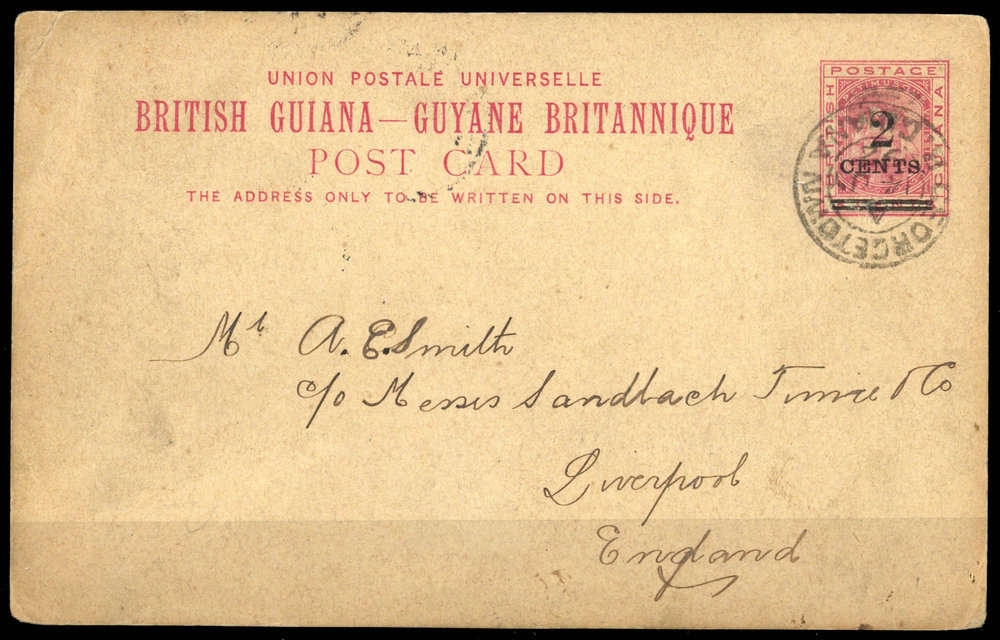 UNION POSTALE UNIVERSELLE
BRITISH GUIANA—GUYANE BRITANNIQUE
POST CARD
THE ADDRESS ONLY TO BE WRITTEN ON THIS SIDE.
POSTAGE
BRITISH
GUIANA
2
CENTS.
GEORGETOWN
Mr A. E. Smith
c/o Messrs Sandbach Tinne & Co
Liverpool
England